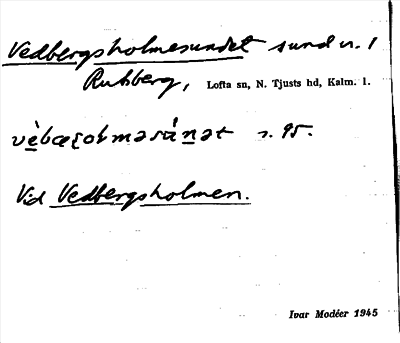 Vedbergsholmesundet sund n. 1
Rukberg, Lofta sn, N. Tjusts hd, Kalm. l.
s. 95.
Vid Vedbergsholmen.
Ivar Modéer 1945